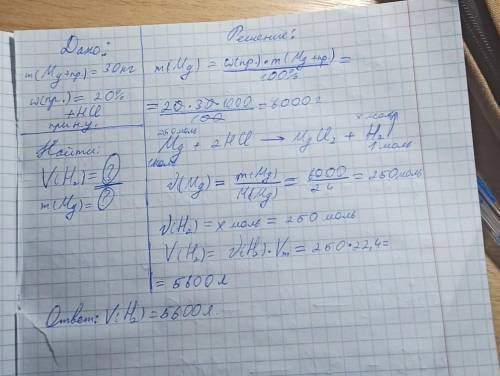 Дано:
m(Mg+пр.) = 30 кг
ω(пр.) = 20%
+HCl
Найти:
V(H₂) = ?
m(Mg) = ?
Решение:
m(Mg) = ω(пр.)·m(Mg+пр) / 100% =
= 20·30·1000 / 100 = 6000 г
250 моль x моль
Mg + 2HCl → MgCl₂ + H₂
1 моль 1 моль
ν(Mg) = m(Mg) / M(Mg) = 6000 / 24 = 250 моль
ν(H₂) = x моль = 250 моль
V(H₂) = ν(H₂)·Vm = 250·22,4=
= 5600 л
Ответ: V(H₂) = 5600 л.